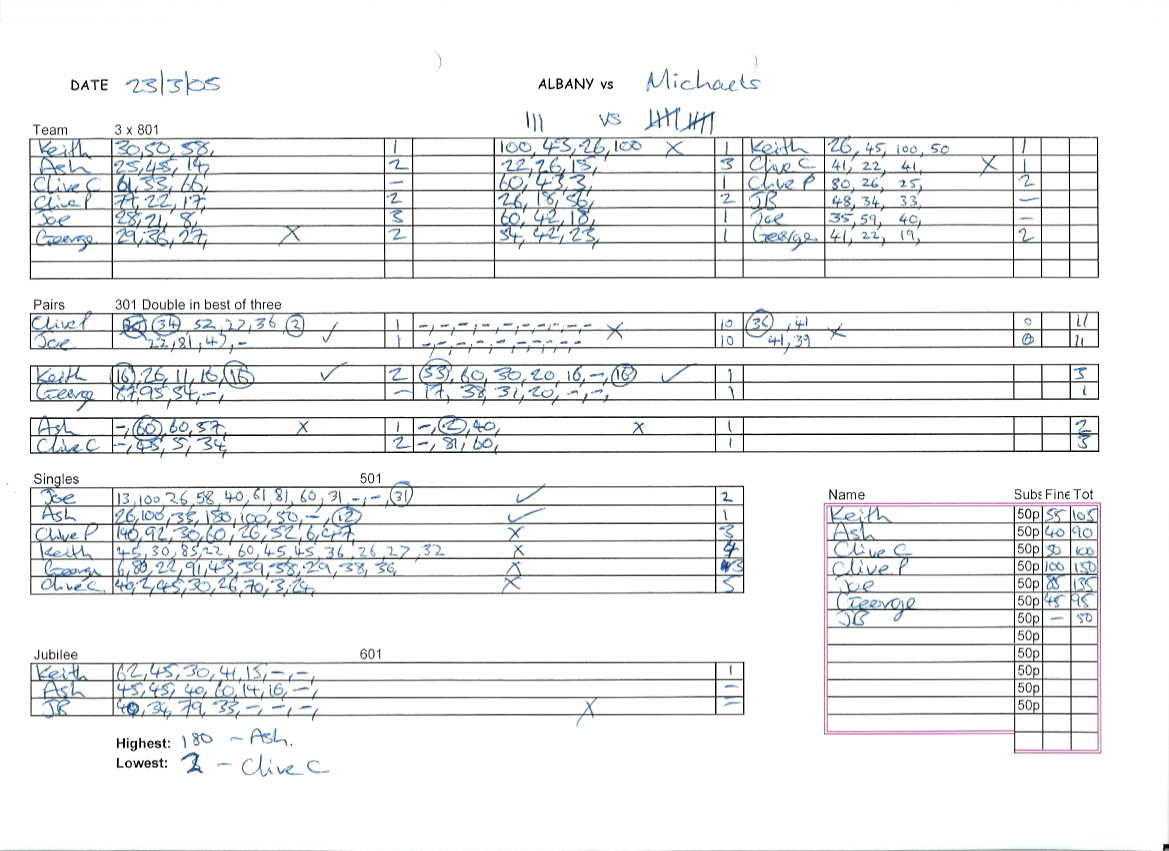 DATE 23/3/05 ALBANY vs Michaels
||| vs
Team 3 x 801
Keith 30,50,58, 1 100,43,26,100 X 1 Keith 26,45,100,50 1
Ash 25,45,14, 2 22,26,15, 3 Clive C 41,22,41, X 1
Clive C 61,33,66, – 60,43,3, 1 Clive P 80,26,25, 2
Clive P 71,22,17, 2 26,18,56, 2 JB 48,34,33, –
Joe 28,21,8, 3 60,42,18, 1 Joe 35,59,40, –
George 29,36,27, X 2 54,42,23, 1 George 41,22,19, 2
Pairs 301 Double in best of three
Clive P (34), 52,27,36,(2) ✓ 1 -,-,-,-,-,-,-,-- X 10 (36),41 X 0 11
Joe 22,81,47,- 1 -,-,-,-,-,-,-,-- 10 41,39 0 11
Keith (16),26,11,16,(16) ✓ 2 (53),60,30,20,16,-,(16) ✓ 1 3
George 67,95,54,-, – 17,38,31,20,-,-, 1 1
Ash -,(60),60,57, X 1 -,(2),40, X 1 2
Clive C -,45,5,34, 2 -,81,60, 1 3
Singles 501
Joe 13,100,26,58,40,61,81,60,31,-,-,(31) ✓ 2
Ash 26,100,35,180,100,50,-,(12) ✓ 1
Clive P 140,92,30,60,26,52,6,47, X 3
Keith 45,30,85,22,60,45,45,36,26,27,32 X 4
George 6,80,22,91,43,39,58,29,38,36, X 3
Clive C. 40,2,45,30,26,70,3,24, X 5
Name Subs Fine Tot
Keith 50p 55 105
Ash 50p 40 90
Clive C 50p 50 100
Clive P 50p 100 150
Joe 50p 85 135
George 50p 45 95
JB 50p – 50
50p
50p
50p
50p
50p
Jubilee 601
Keith 62,45,30,41,15,-,-, 1
Ash 45,45,40,60,14,16,-, –
JB 40,34,79,33,-,-,-, X –
Highest: 180 – Ash.
Lowest: 2 – Clive C